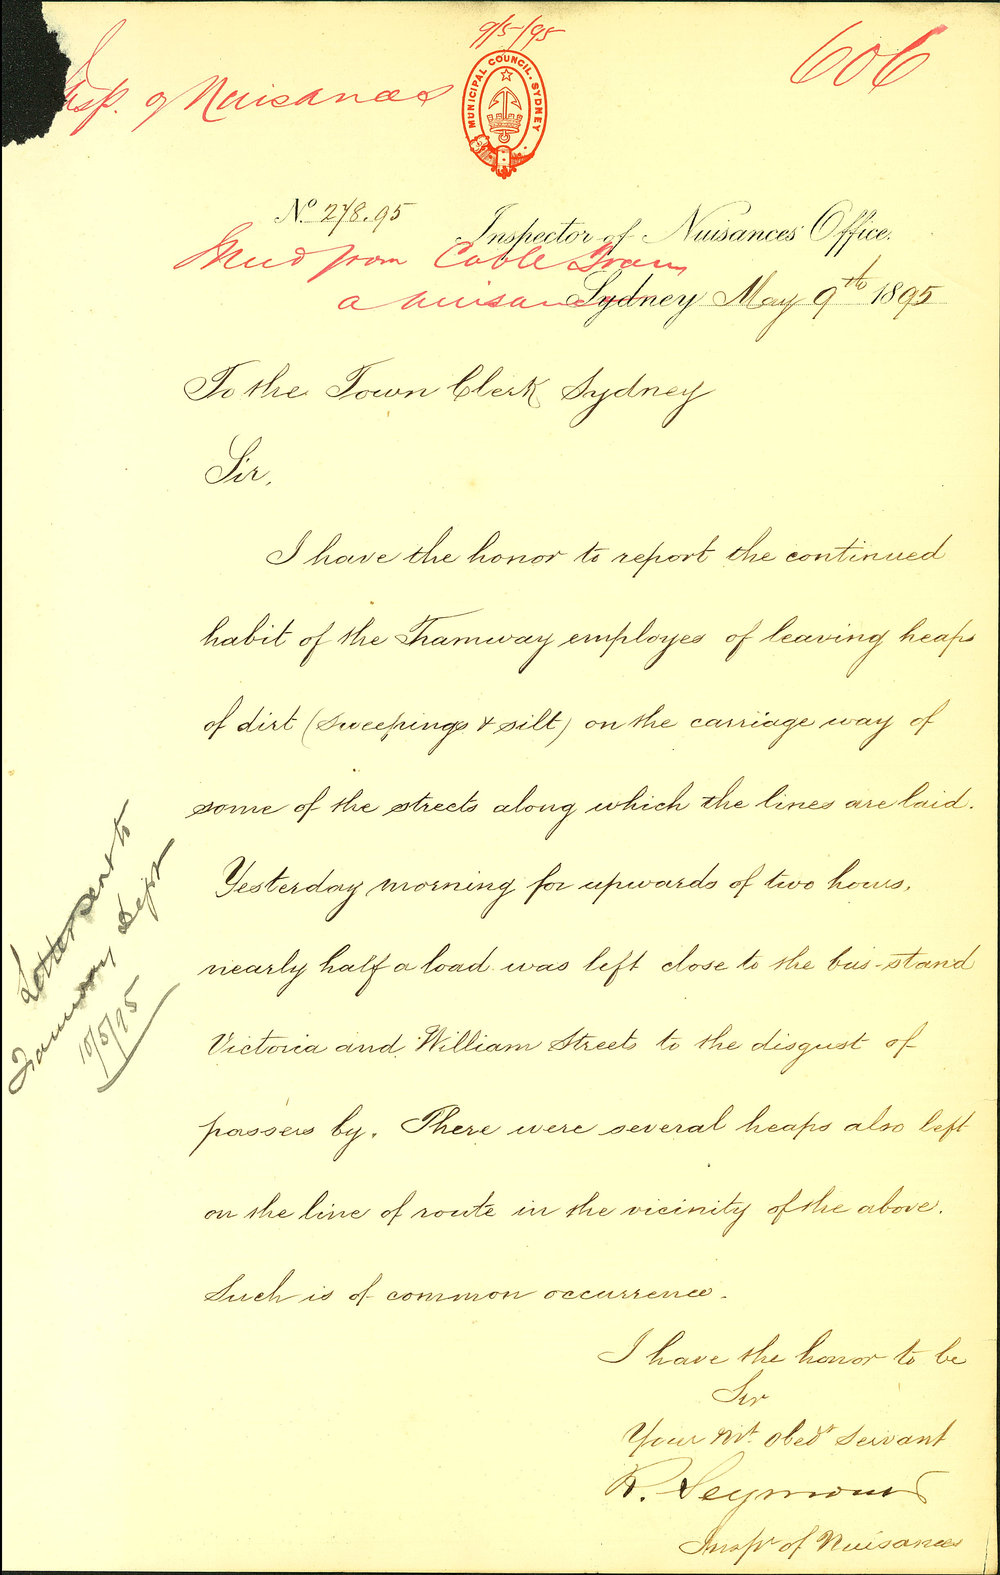 9/5/95
606
Insp. of Nuisances
MUNICIPAL COUNCIL. SYDNEY
No 278.95
Inspector of Nuisances' Office.
Mud from Cable Tram
a nuisance
Sydney May 9th 1895
To the Town Clerk Sydney
Sir,
I have the honor to report the continued
habit of the Tramway employes of leaving heaps
of dirt (sweepings & silt) on the carriage way of
some of the streets along which the lines are laid.
Yesterday morning for upwards of two hours,
nearly half a load was left close to the bus-stand
Victoria and William Streets to the disgust of
passers by. There were several heaps also left
on the line of route in the vicinity of the above.
Such is of common occurrence.
I have the honor to be
Sir
Your Mt. Obedt Servant
R. Seymour
Inspr of Nuisances
Letter sent to
Tramway Dept
10/5/95